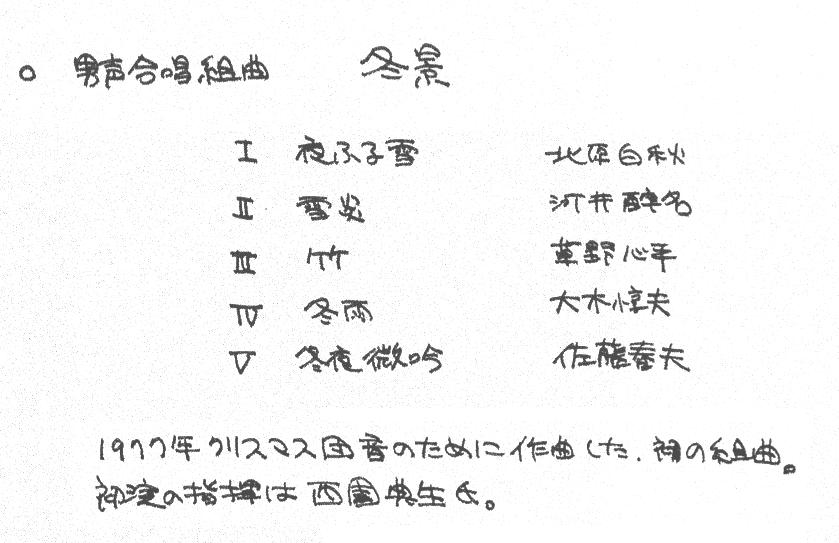 ○ 男声合唱組曲 冬景
Ⅰ 夜ふる雪 北原白秋
Ⅱ 雪炎 河井酔名
Ⅲ 竹 草野心平
Ⅳ 冬雨 大木惇夫
Ⅴ 冬夜微吟 佐藤春夫
1977年クリスマス団音のために作曲した、初の組曲。
初演の指揮は 西園典生氏。